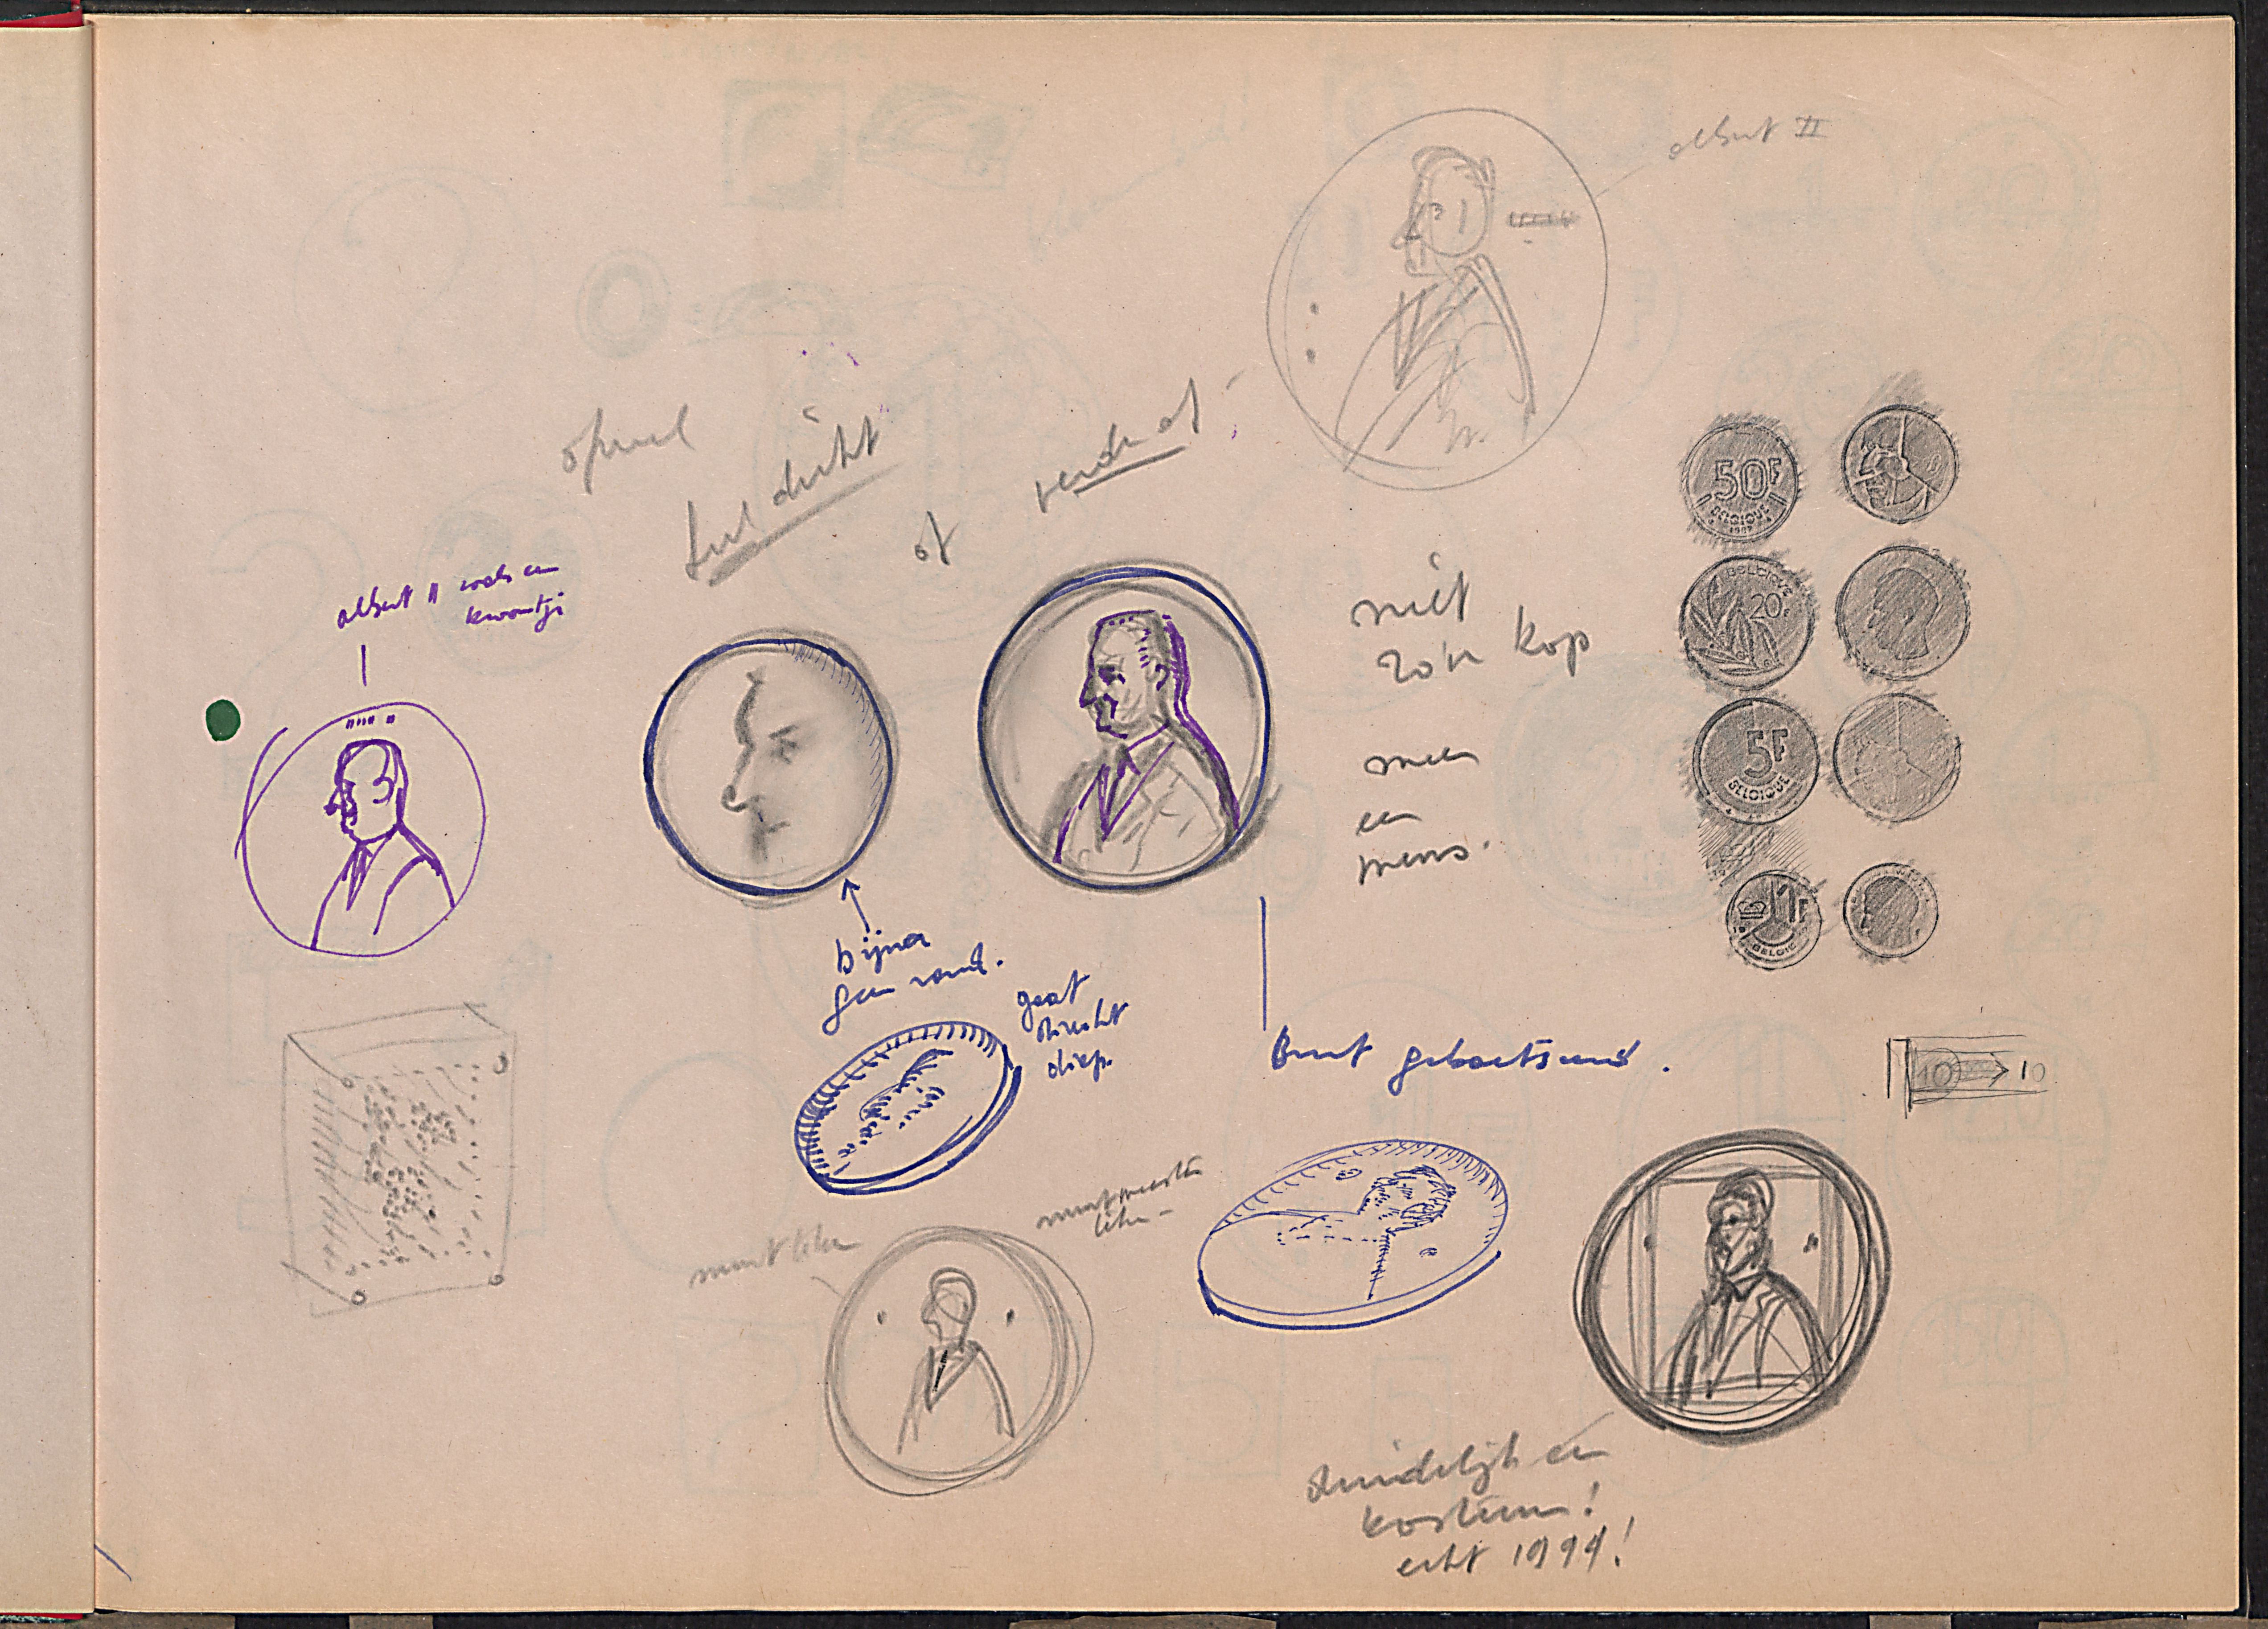 albert II
ofwel
heel dicht
of
verder af
albert II zoals een
kwartje
niet
zo'n kop
meer
een
mens.
50F
BELGIQUE
1987
BELGIQUE
20F
5F
BELGIQUE
1F
BELGIE
bijna
geen rand.
gaat
direkt
diep.
Bust geboetseerd.
10
10
munt teken
muntmeester
teken
duidelijk een
kostuum!
echt 1994!